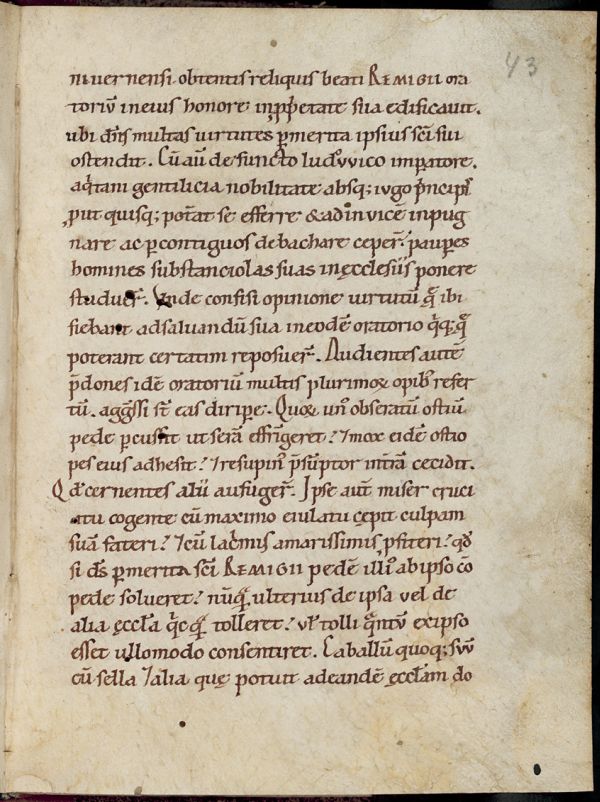 43
niuernensi. obtentis reliquiis beati REMIGII ora
toriū in eius honore in ꝓpꝛietate sua edificauit.
ubi dn̄s multas uirtutes ꝑ merita ipsius sc̄i sui
ostendit. Cū aū defuncto ludouuico imꝑatore.
aqͥtani gentilicia nobilitate absq; iugo pͥncipis
ꝓut quisq; potᷓat se efferre & ad inuicē inpug
nare ac ꝑ contiguos debachare ceper̄. pauꝑes
homines substanciolas suas in ęcclesiis ponere
studuer̄. Vnde confisi opinione uirtutū qᷓ ibi
fiebant ad saluandū sua in eodē oratorio qͥq; qᷓ
poterant certatim reposuer̄. Audientes autē
p̄dones idē oratoriū multis plurimoꝝ opibꝰ refer
tū. aggͣssi st̄ eas diriꝑe. Quoꝝ unꝰ obseratū ostiū
pede ꝑcussit ut serā effringeret? ⁊ mox eidē ostio
pes eius adhesit? ⁊ resupinꝰ p̄sūptor int̄rā cecidit.
Qđ cernentes alii aufuger̄. Ipse aut̄ miser cruci
atu cogente cū maximo eiulatu cepit culpam
suā fateri? ⁊ cū lacͥmis amarissimis ꝓfiteri? qđ
si ds̄ ꝑ merita sc̄i REMIGII pedē illiꝰ ab ipso cō
pede solueret? nūqᷓ ulterius de ipsa uel de
alia ęccła qͥcqᷓ tolleret? uł tolli qͣntū ex ipso
esset ullomodo consentiret. Caballū quoq; suū
cū sella ⁊ alia quę potuit ad eandē ęccłam do